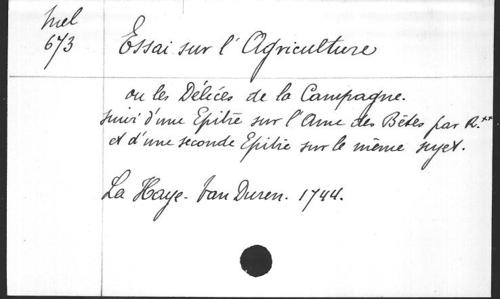 Mel
673
Essai sur l'Agriculture
ou les Délices de la Campagne.
suivi d'une Epitre sur l'Ame des Bêtes par R.**
et d'une seconde Epitre sur le même sujet.
La Haye - Van Duren. 1744.